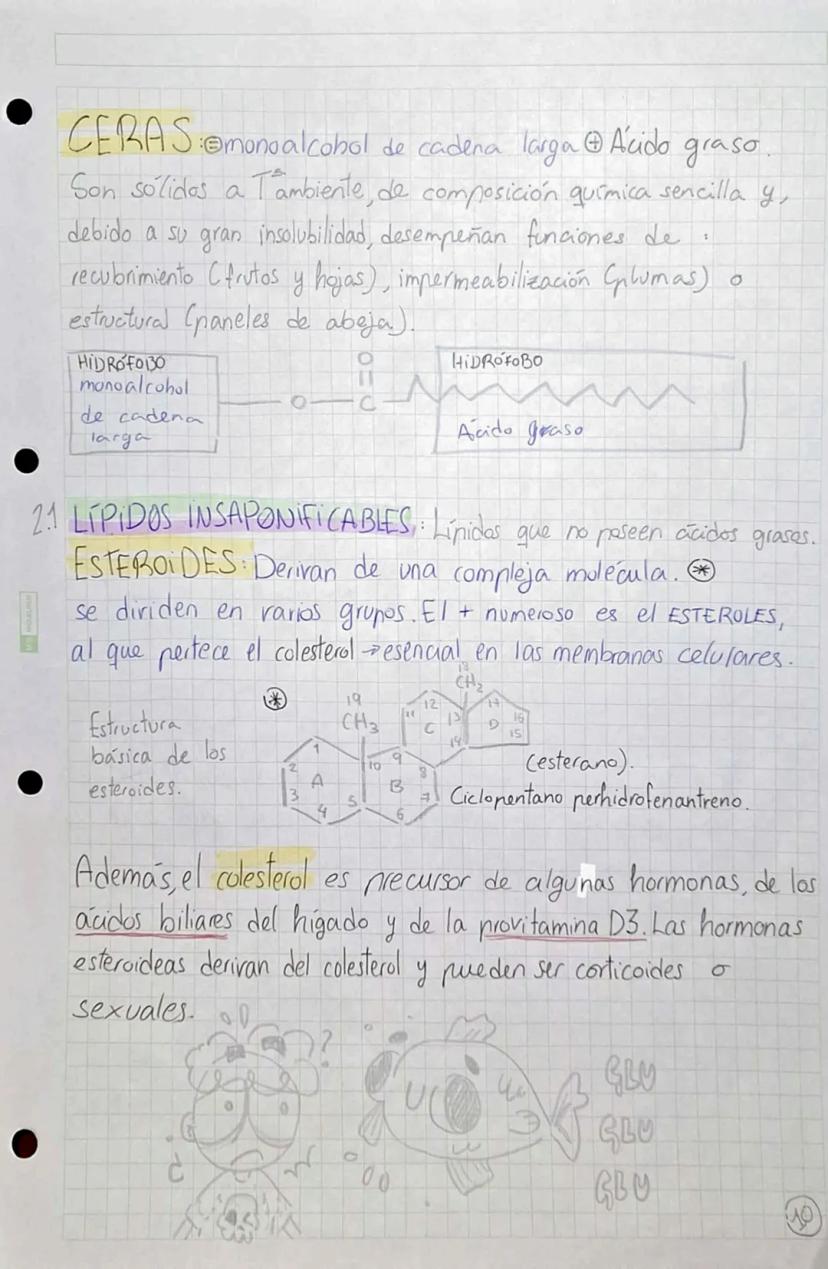 CERAS:⊜monoalcohol de cadena larga ⊕ Ácido graso.
Son sólidos a Tª ambiente, de composición química sencilla y,
debido a su gran insolubilidad, desempeñan funciones de :
recubrimiento (frutos y hojas), impermeabilización (plumas) o
estructural (paneles de abeja).
HIDRÓFOBO
monoalcohol
de cadena
larga
O
O
C
HIDRÓFOBO
Ácido graso
2.1 LÍPIDOS INSAPONIFICABLES: Lípidos que no poseen ácidos grasos.
ESTEROIDES: Derivan de una compleja molécula. ⊛
se dividen en varios grupos. El + numeroso es el ESTEROLES,
al que pertece el colesterol → esencial en las membranas celulares.
Estructura
básica de los
esteroides.
⊛
19
CH3
18
CH2
1
2
3
4
5
A
10
9
8
7
6
B
11
12
13
14
C
17
16
15
D
(esterano).
Ciclopentano perhidrofenantreno.
Además, el colesterol es precursor de algunas hormonas, de los
ácidos biliares del hígado y de la provitamina D3. Las hormonas
esteroideas derivan del colesterol y pueden ser corticoides o
sexuales.
?
¿
GLU
GLU
GLU
10